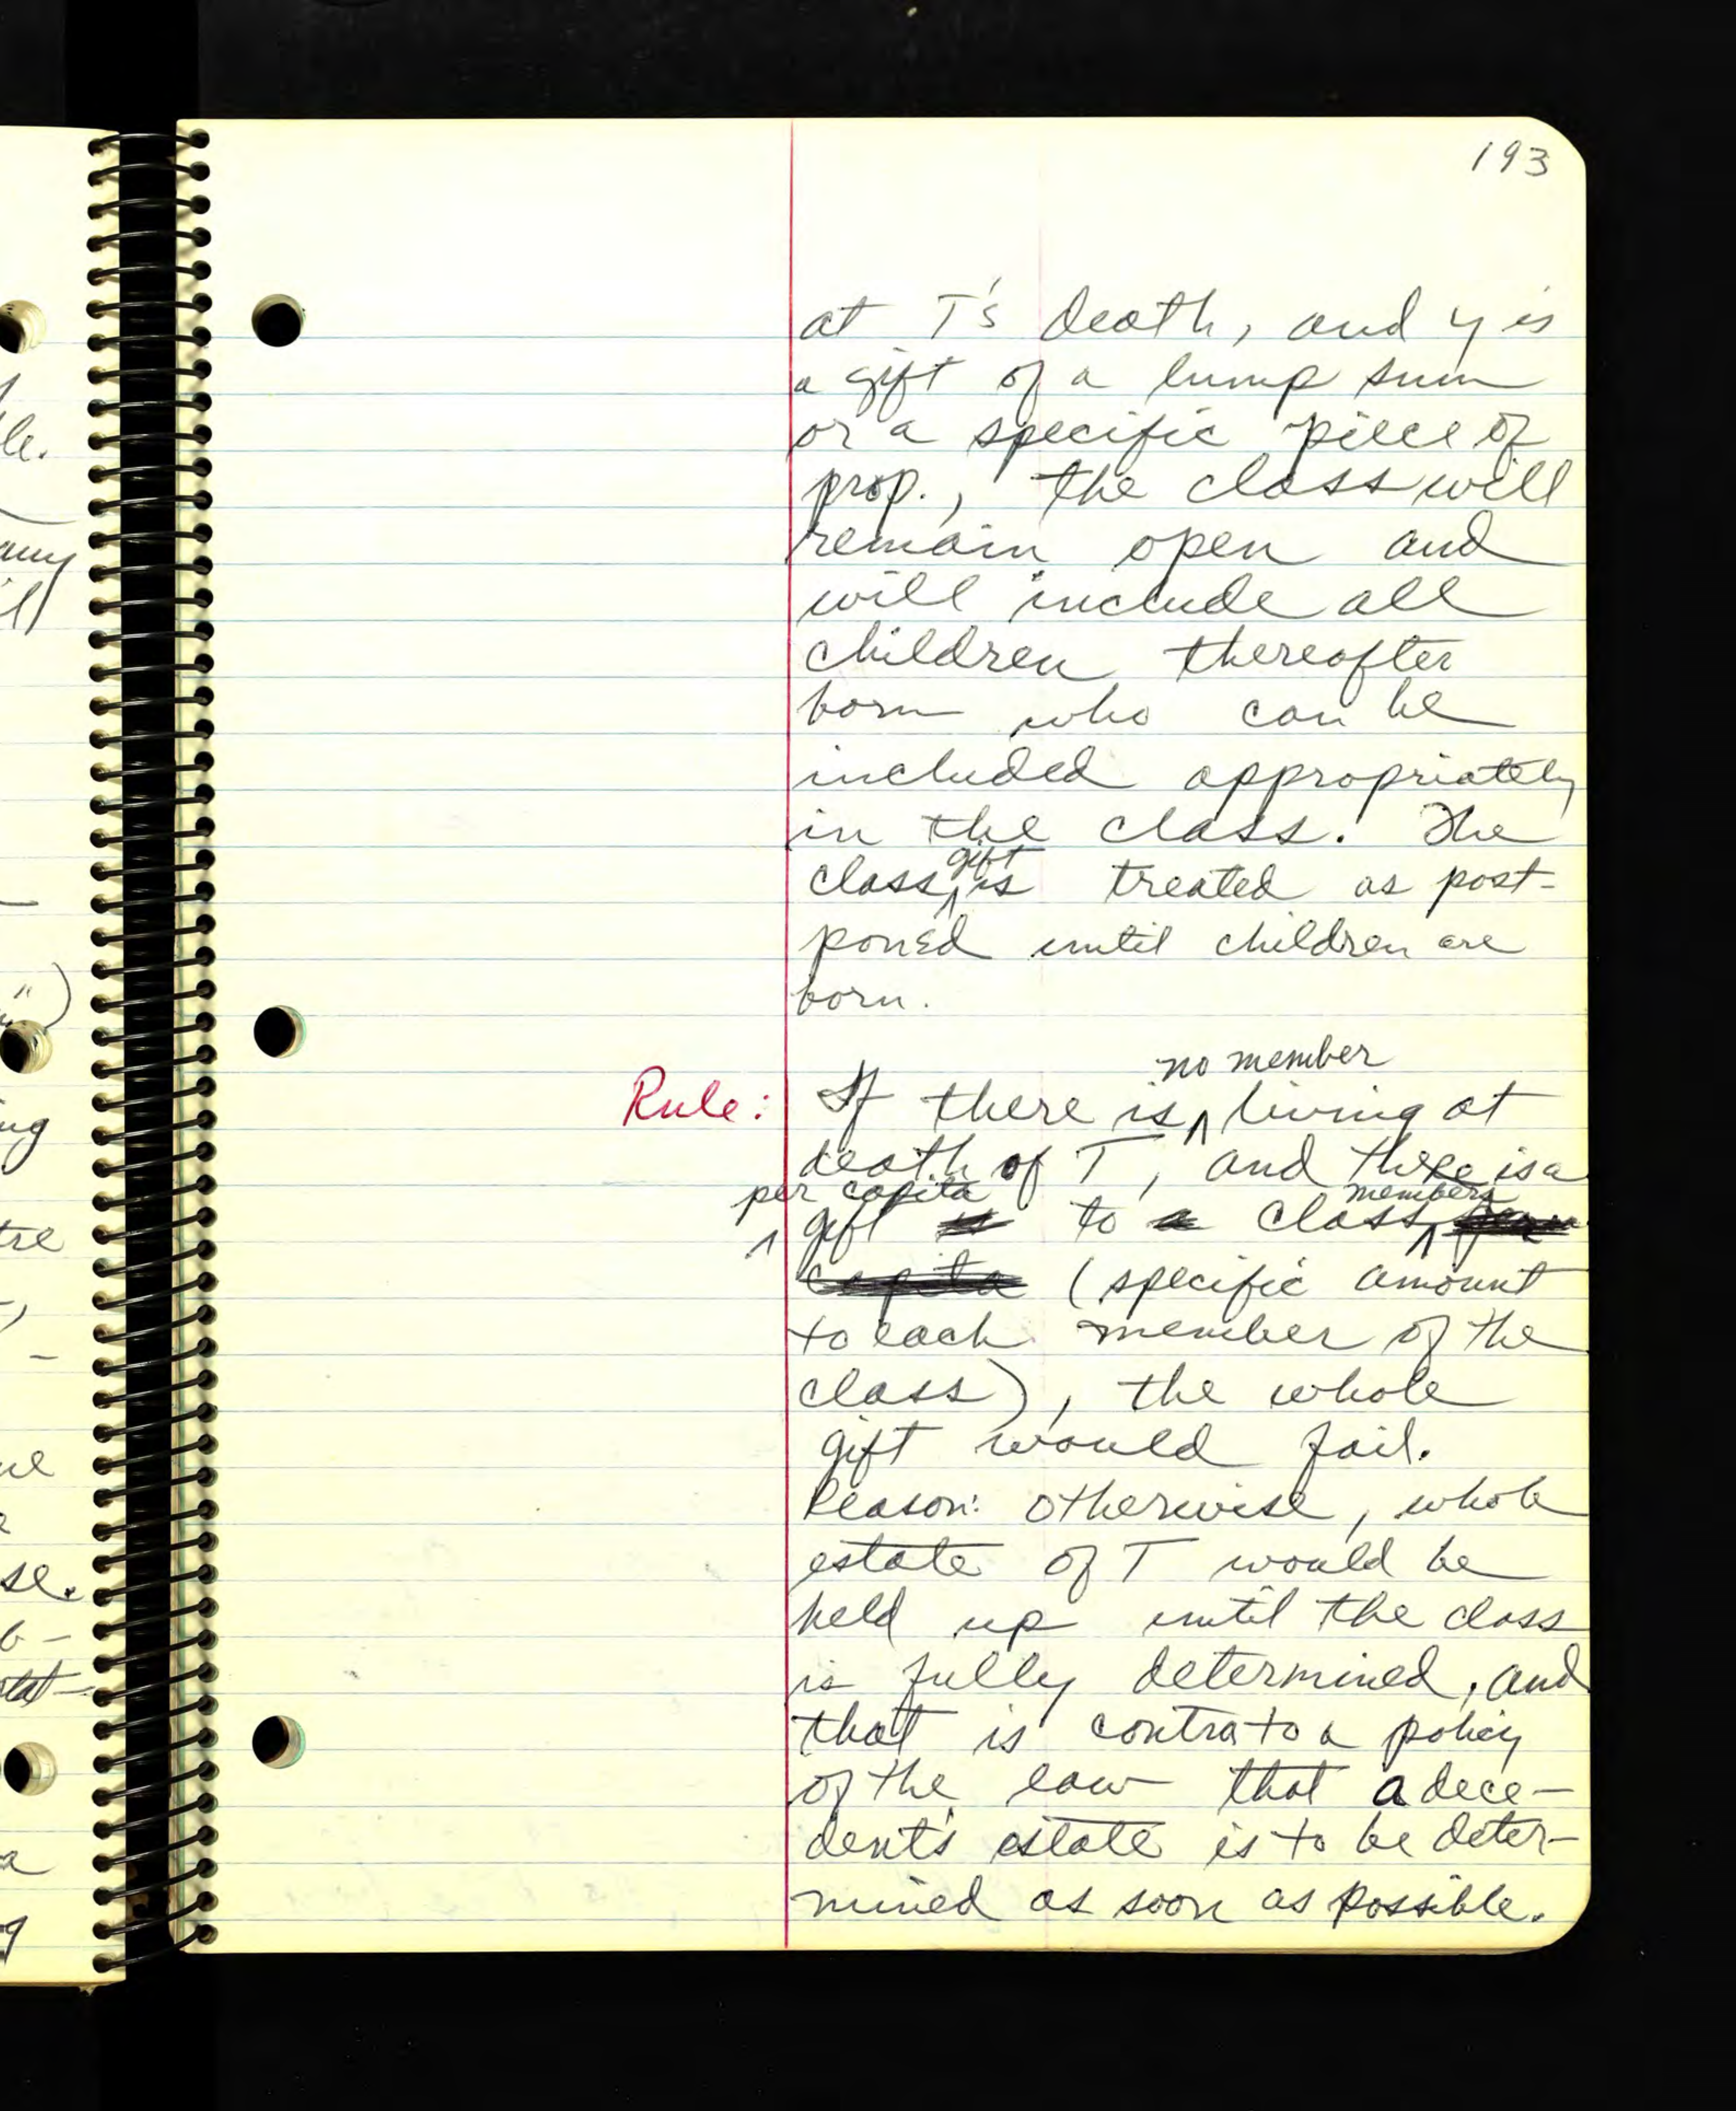 193
at T's death, and y is
a gift of a lump sum
or a specific piece of
prop., the class will
remain open and
will include all
children thereafter
born who can be
included appropriately
in the class. The
class gift is treated as post-
poned until children are
born.
Rule: If there is no member living at
death of T, and there is a
per capita gift to class members
(specific amount
to each member of the
class), the whole
gift would fail.
Reason: otherwise, whole
estate of T would be
held up until the class
is fully determined, and
that is contra to a policy
of the law that a dece-
dent's estate is to be deter-
mined as soon as possible.